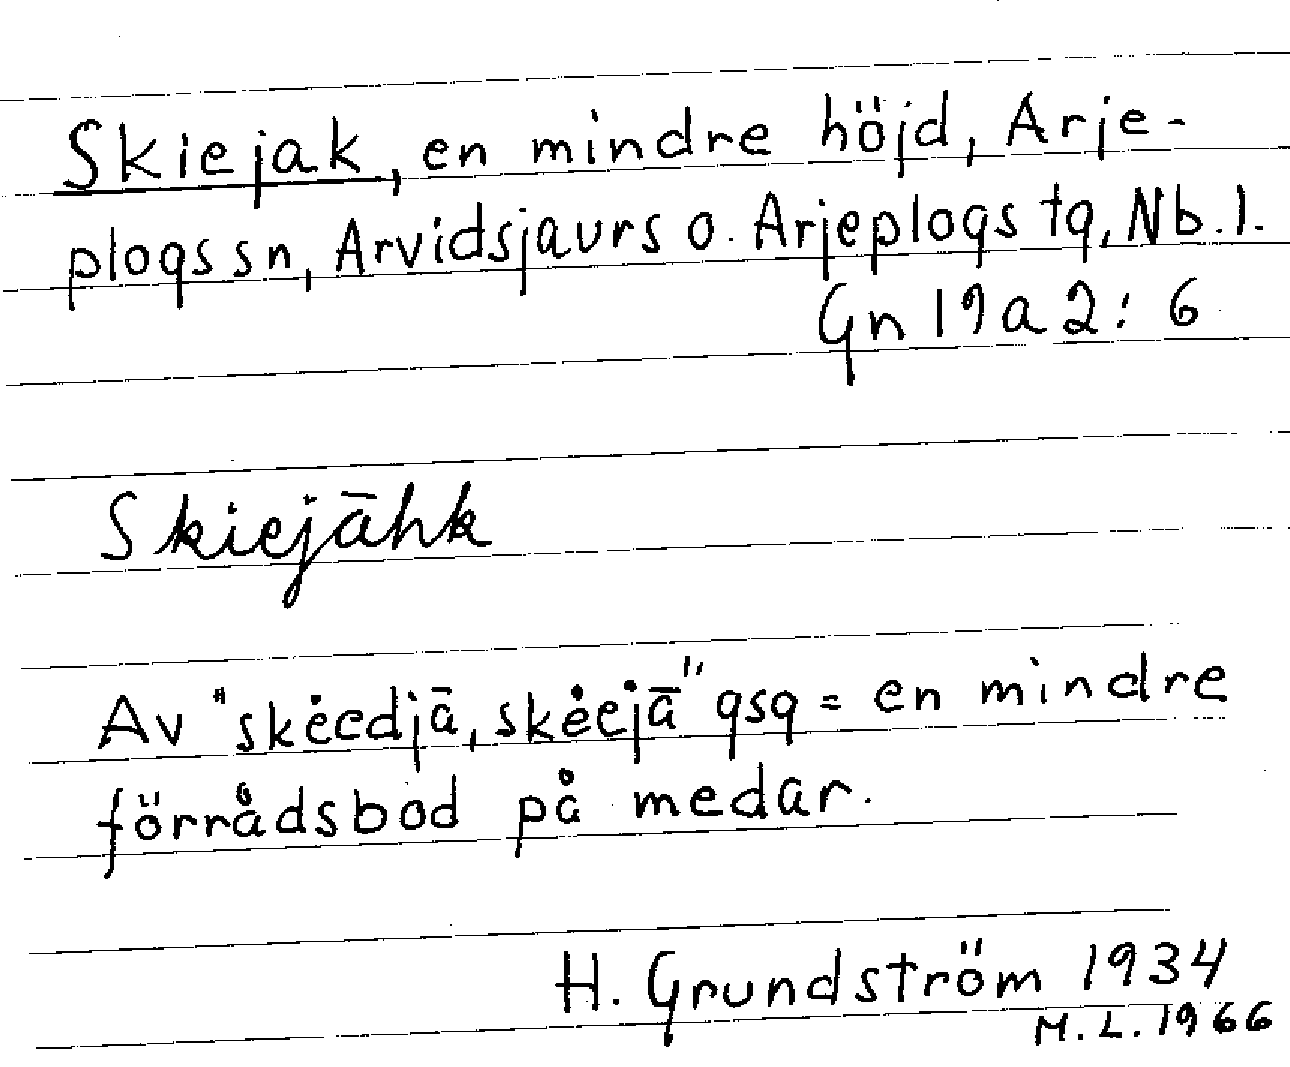 Skiejak, en mindre höjd, Arje-
plogs sn, Arvidsjaurs o. Arjeplogs tg, Nb. l.
Gn 19 a 2: 6
Skiejāhk
Av "skėedjā, skėejā" gsg = en mindre
förrådsbod på medar.
H. Grundström 1934
M. L. 1966